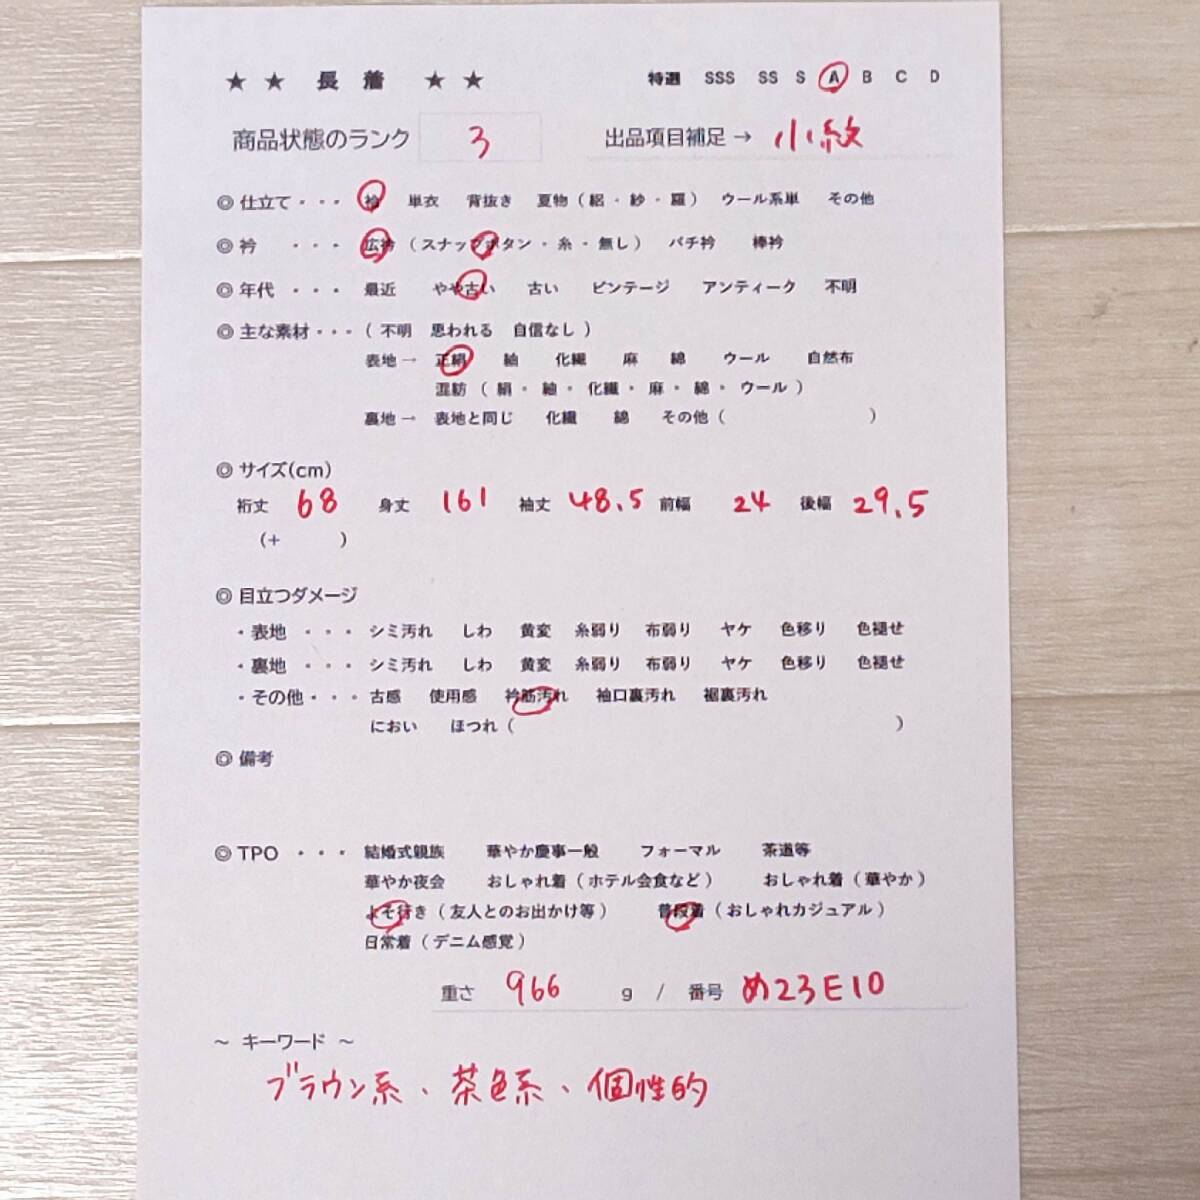 ★ ★ 長 着 ★ ★ 特選 SSS SS S A B C D
商品状態のランク 3 出品項目補足 → 小紋
◎ 仕立て・・・ 袷 単衣 背抜き 夏物（絽・紗・羅） ウール系単 その他
◎ 衿 ・・・ 広衿（スナップボタン・糸・無し） バチ衿 棒衿
◎ 年代 ・・・ 最近 やや古い 古い ビンテージ アンティーク 不明
◎ 主な素材・・・（ 不明 思われる 自信なし ）
表地→ 正絹 紬 化繊 麻 綿 ウール 自然布
混紡（ 絹・紬・化繊・麻・綿・ウール ）
裏地→ 表地と同じ 化繊 綿 その他（ ）
◎ サイズ(cm)
裄丈 68 身丈 161 袖丈 48.5 前幅 24 後幅 29.5
(+ )
◎ 目立つダメージ
・表地 ・・・ シミ汚れ しわ 黄変 糸弱り 布弱り ヤケ 色移り 色褪せ
・裏地 ・・・ シミ汚れ しわ 黄変 糸弱り 布弱り ヤケ 色移り 色褪せ
・その他・・・ 古感 使用感 衿筋汚れ 袖口裏汚れ 裾裏汚れ
におい ほつれ（ ）
◎ 備考
◎ TPO ・・・ 結婚式親族 華やか慶事一般 フォーマル 茶道等
華やか夜会 おしゃれ着（ホテル会食など） おしゃれ着（華やか）
よそ行き（友人とのお出かけ等） 普段着（おしゃれカジュアル）
日常着（デニム感覚）
重さ 966 g / 番号 め23E10
～ キーワード ～
ブラウン系、茶色系、個性的